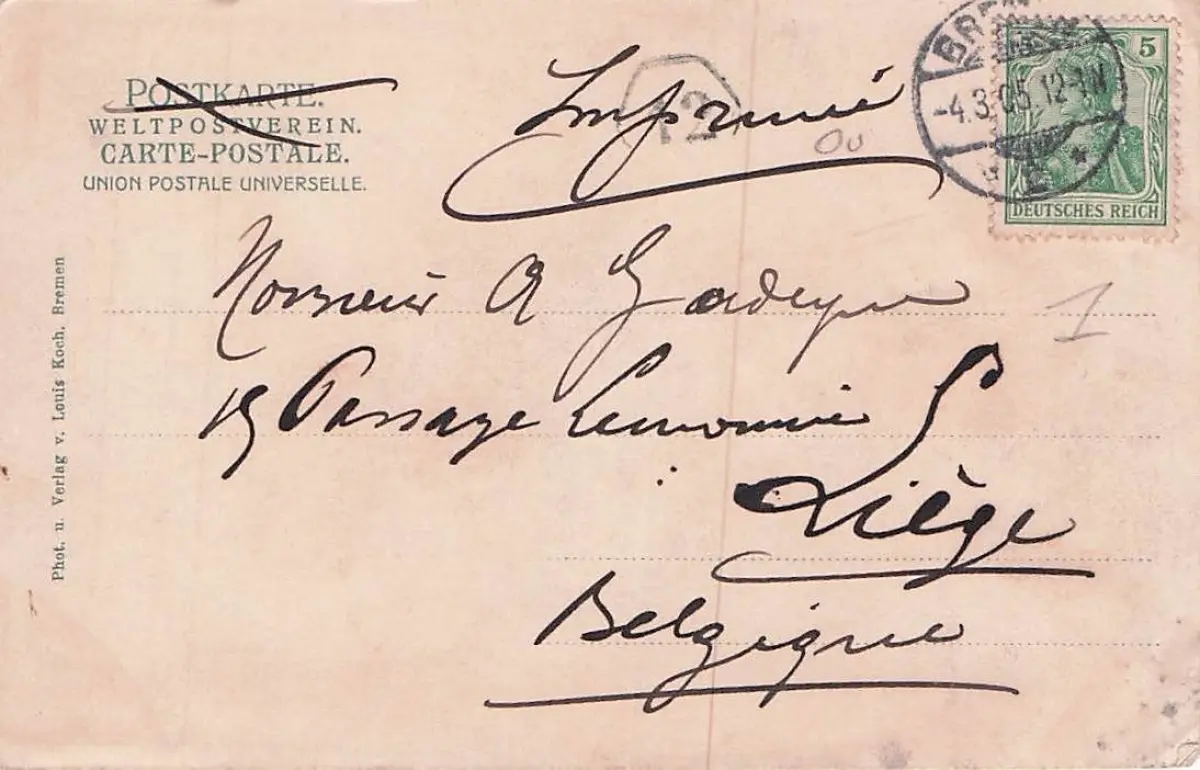 POSTKARTE.
WELTPOSTVEREIN.
CARTE-POSTALE.
UNION POSTALE UNIVERSELLE.
Imprimé
12
Ou
BREM
-4.3.05.12-1N
5
DEUTSCHES REICH
Monsieur A
19 Passage Lemonnier
Liège
Belgique
1
Phot. u. Verlag v. Louis Koch, Bremen